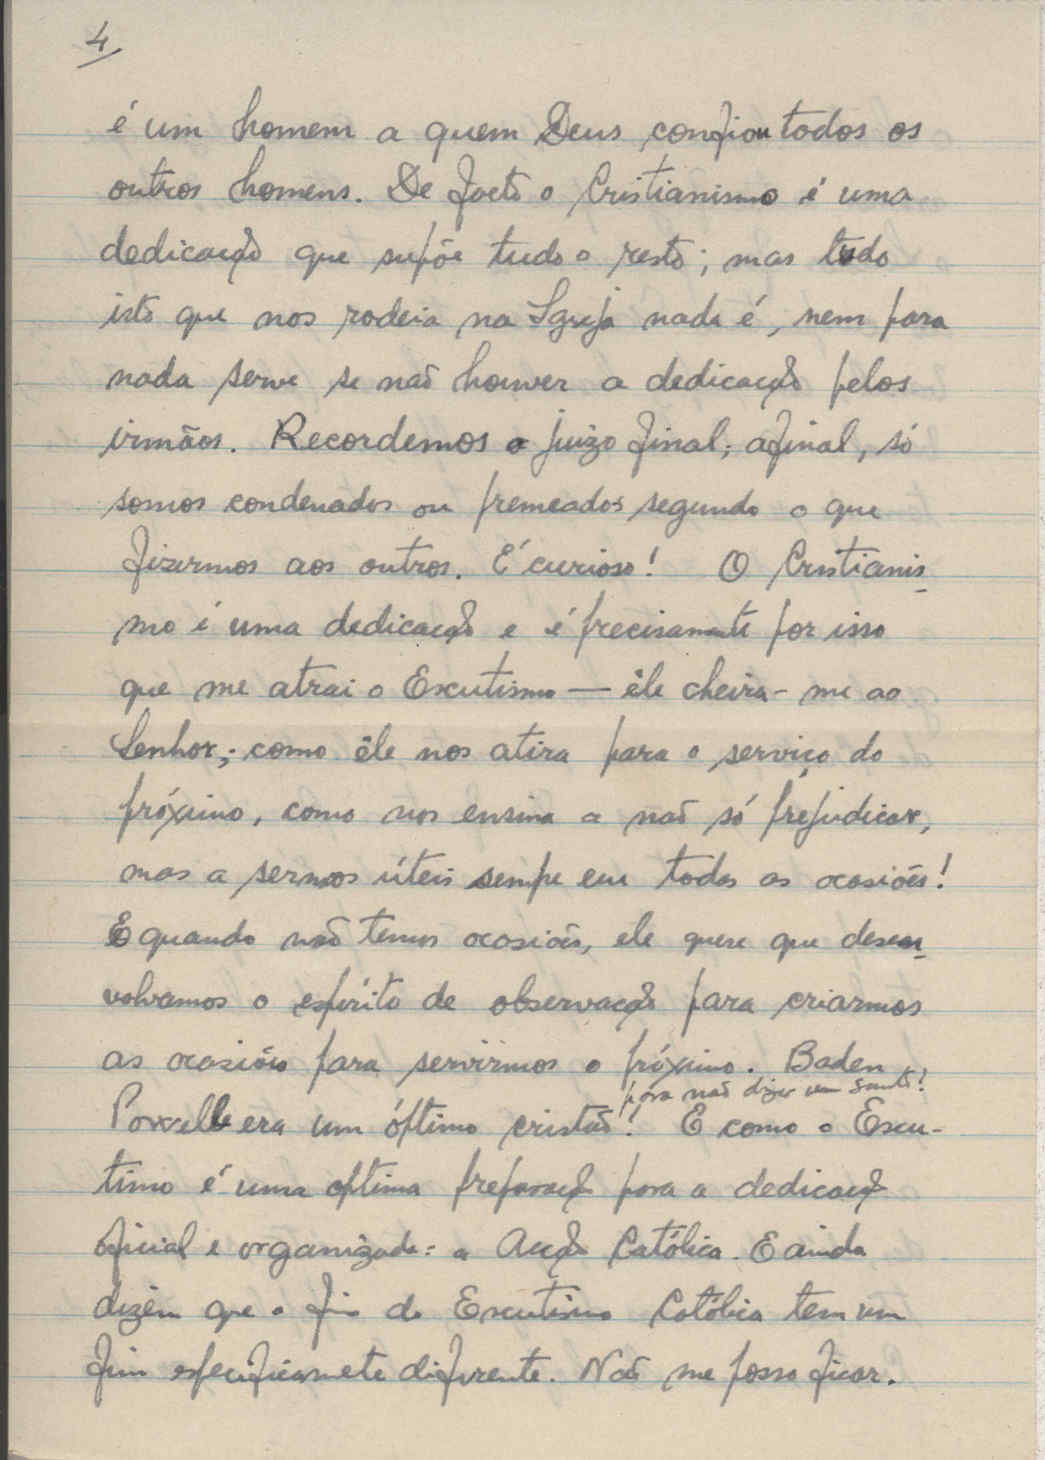 4
é um homem a quem Deus confiou todos os
outros homens. De facto o Cristianismo é uma
dedicação que supõe tudo o resto; mas tudo
isto que nos rodeia na Igreja nada é, nem para
nada serve se não houver a dedicação pelos
irmãos. Recordemos o juizo final; afinal, só
somos condenados ou premeados segundo o que
fizermos aos outros. É curioso! O Cristianis-
mo é uma dedicação e é precisamente por isso
que me atrai o Escutismo — êle cheira-me ao
Senhor; como êle nos atira para o serviço do
próximo, como nos ensina a não só prejudicar,
mas a sermos úteis sempe em todas as ocasiões!
E quando não temos ocasiões, ele quere que desen-
volvamos o espírito de observação para criarmos
as ocasiões para servirmos o próximo. Baden
para não dizer um Santo!
Powell era um óptimo cristão! E como o Escu-
timo é uma optima preparação para a dedicação
oficial e organizada: a Acção Católica. E ainda
dizem que o fim do Escutismo Católico tem um
fim especificamete diferente. Não me posso ficar.